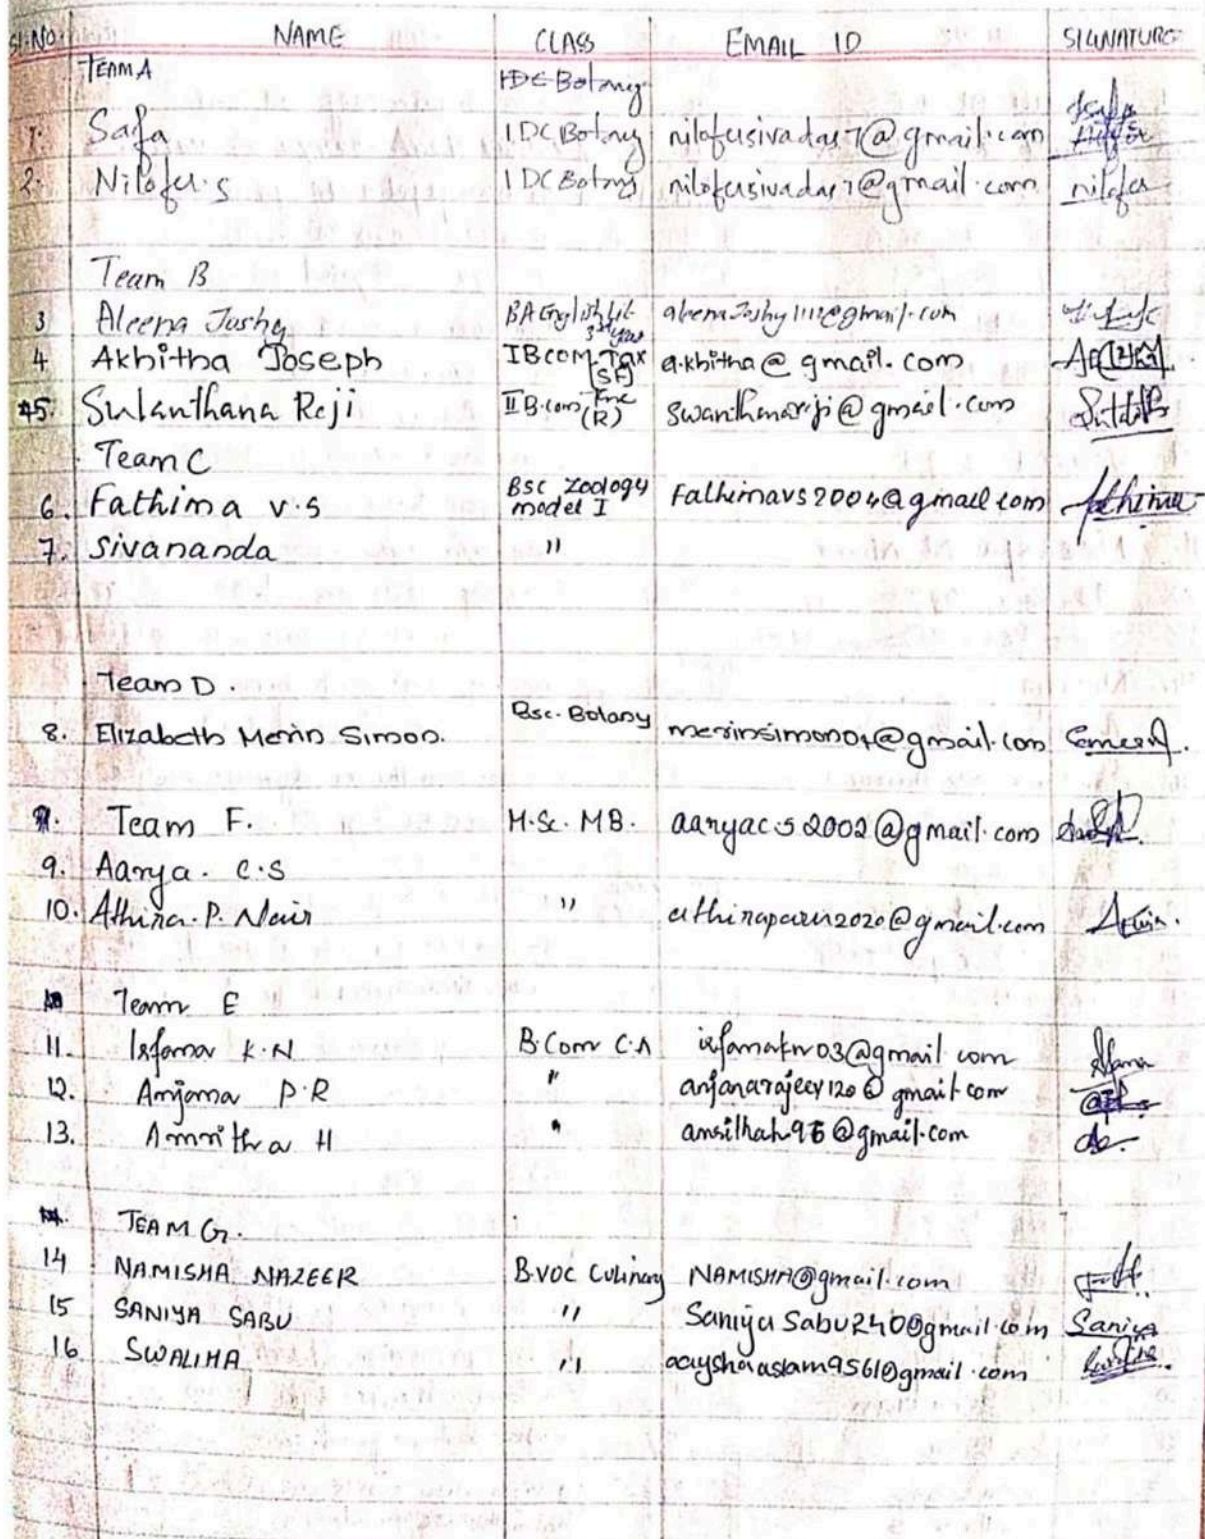 Sl.No. NAME CLASS EMAIL ID SIGNATURE
TEAM A
1. Safa I DC Botany nilofusivadas7@gmail.com
2. Nilofer.S I DC Botany nilofusivadas7@gmail.com nilofer
Team B
3 Aleena Joshy BA English Lit. 3rd year aleenaJoshy1112@gmail.com
4 Akhitha Joseph I B COM Tax (SF) akhitha@gmail.com
5. Sulanthana Reji II B.com (R) swanthanareji@gmail.com
Team C
6. Fathima V.S BSC Zoology model I Fathimavs2004@gmail.com fathima
7. Sivananda "
Team D.
8. Elizabeth Merin Simon. Bsc. Botany merinsimon04@gmail.com
Team F. M.Sc. MB. aaryacs2002@gmail.com
9. Aarya. C.S
10. Athira. P. Nair " athiraparu2020@gmail.com
Team E
11. Irfana K.N B.Com C.A irfanakn03@gmail.com
12. Anjana P.R " anjanarajeev120@gmail.com
13. Amritha H " amrithah96@gmail.com
TEAM G.
14 NAMISHA NAZEER B.VOC Culinary NAMISHA@gmail.com
15 SANIYA SABU " Saniya Sabu240@gmail.com Saniya
16 SWALIHA " aayshaaslam9561@gmail.com